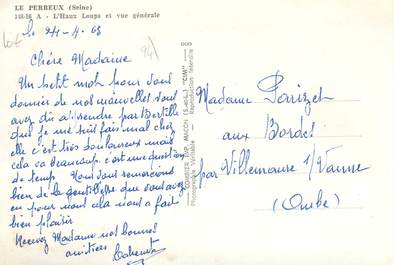 LE PERREUX (Seine)
148-56 A - L'Haux Loups et vue générale
le 24-4-65
94
Chère Madame
Un petit mot pour vous
donner de nos nouvelles vous
avez dû apprendre par Bertille
que je me suis fais mal chez
elle c'est très douloureux mais
cela va beaucoup c'est une question
de temps Nous vous remercions
bien de la gentillesse que vous avez
eu pour nous cela nous a fait
bien plaisir
Recevez Madame nos bonnes
amitiés
Madame Parizet
aux Bordes
par Villemaure s/Vanne
(Aube)
COMBIER IMP. MACON (S.-et-L.) "CIM"
Photographie Véritable - Reproduction Interdite